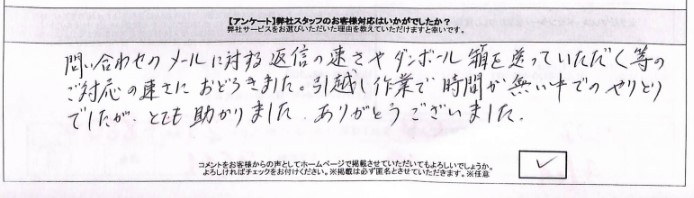 【アンケート】弊社スタッフのお客様対応はいかがでしたか？
弊社サービスをお選びいただいた理由を教えていただけますと幸いです。
問い合わせのメールに対する返信の速さやダンボール箱を送っていただく等の
ご対応の速さにおどろきました。引越し作業で時間が無い中でのやりとり
でしたが、とても助かりました。ありがとうございました。
コメントをお客様からの声としてホームページで掲載させていただいてもよろしいでしょうか。
よろしければチェックをお付けください。※掲載は必ず匿名とさせていただきます。※任意